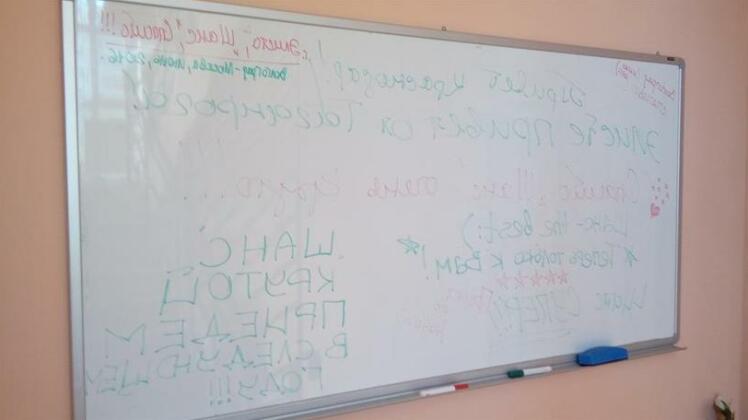 г. Элиста, "Шанс", Спасибо!!!
Волгоград-Москва, июнь, 2016.
Привет Краснодар!
Элисте привет от Таганрога!
!!!
Спасибо, Шанс очень круто...
Шанс - the best:)
* Теперь только к Вам! *
Шанс СУПЕР!!!
ШАНС
КРУТОЙ
ПРИЕДЕМ
В СЛЕДУЮЩЕМ
ГОДУ!!!